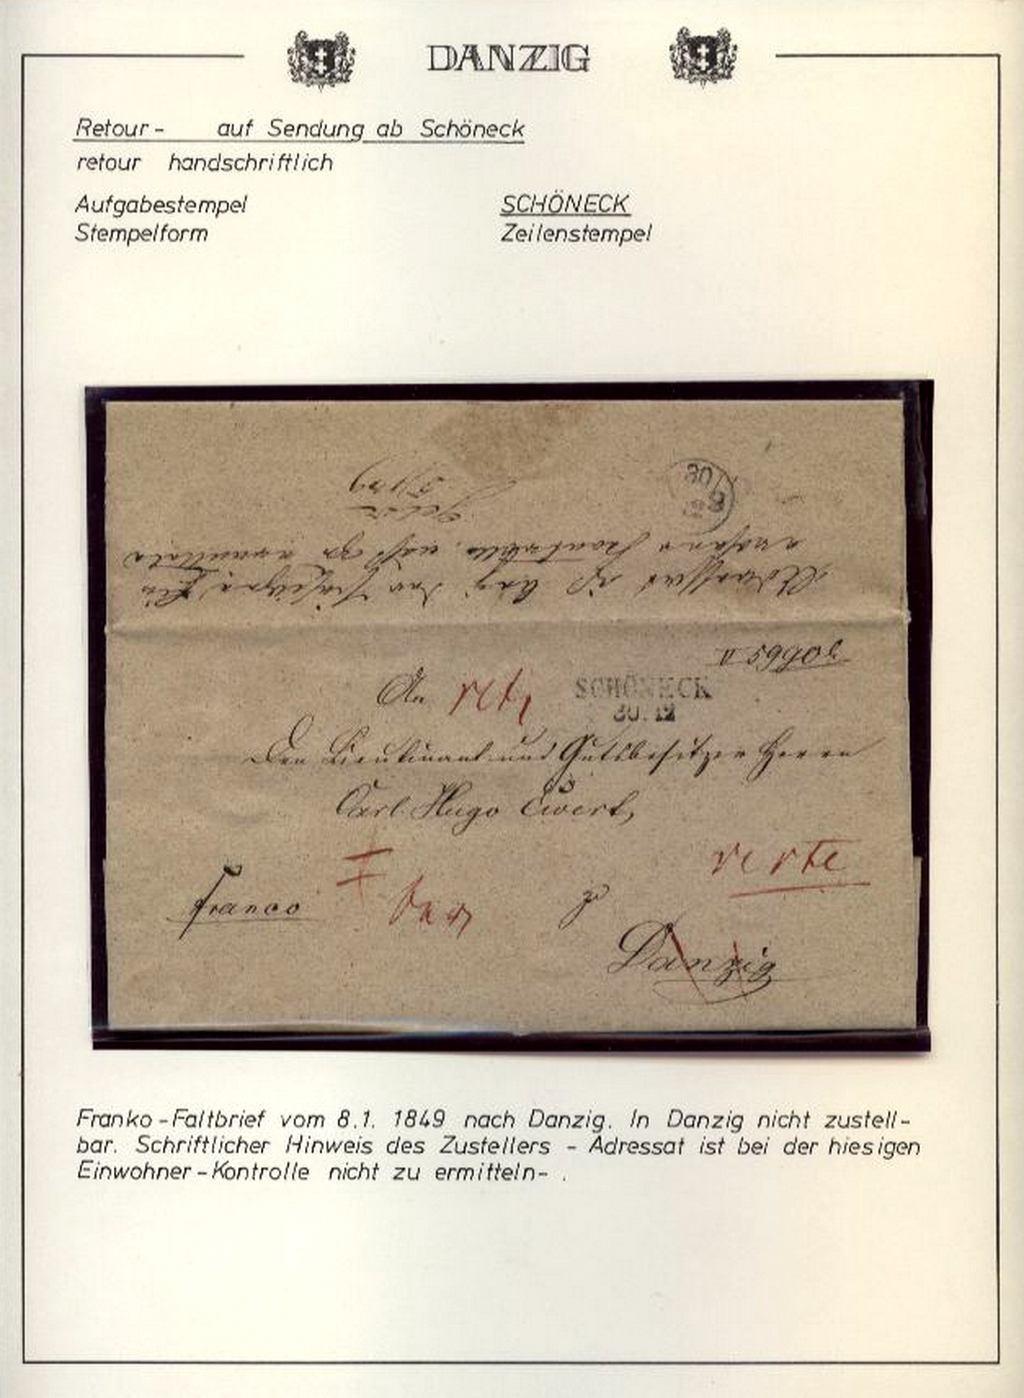 DANZIG
Retour- auf Sendung ab Schöneck
retour handschriftlich
Aufgabestempel SCHÖNECK
Stempelform Zeilenstempel
An ret, SCHÖNECK
30. 12
Den Lieutinant und Gutsbesitzer Herrn
Carl Hugo Ewert,
verte
franco
zu
Danzig
Franko-Faltbrief vom 8.1. 1849 nach Danzig. In Danzig nicht zustell-
bar. Schriftlicher Hinweis des Zustellers - Adressat ist bei der hiesigen
Einwohner-Kontrolle nicht zu ermitteln- .